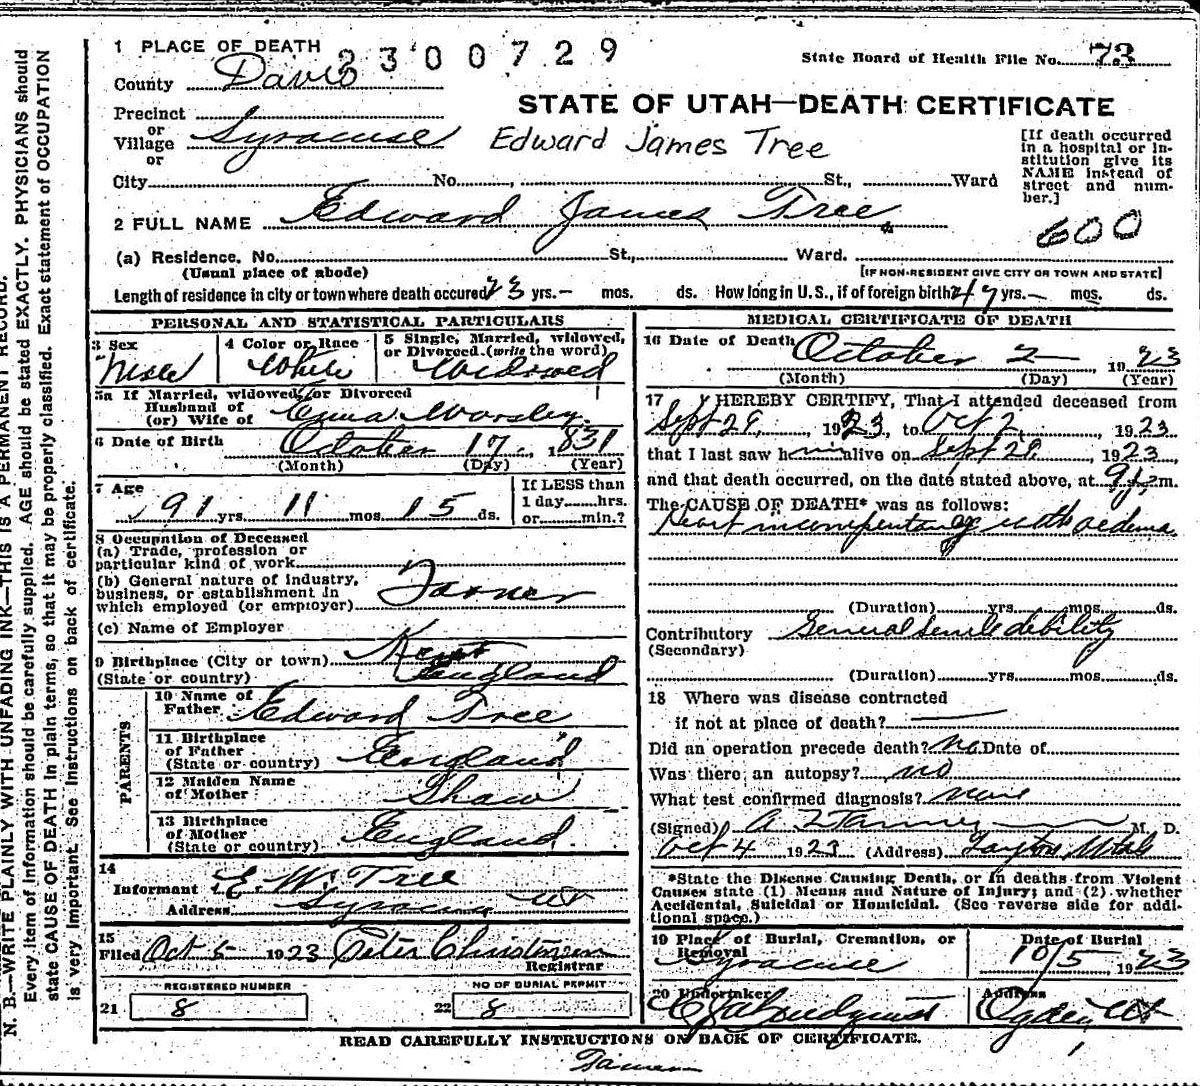 1 PLACE OF DEATH 2300729
State Board of Health File No. 73
County Davis
STATE OF UTAH—DEATH CERTIFICATE
Precinct
or
Village Syracuse
or
Edward James Tree
[If death occurred in a hospital or institution give its NAME instead of street and number.]
City No. , St., Ward
2 FULL NAME Edward James Tree
600
(a) Residence. No. St., Ward.
(Usual place of abode) [IF NON-RESIDENT GIVE CITY OR TOWN AND STATE]
Length of residence in city or town where death occured 23 yrs. – mos. ds. How long in U. S., if of foreign birth? 47 yrs. — mos. ds.
PERSONAL AND STATISTICAL PARTICULARS
3 Sex Male
4 Color or Race White
5 Single, Married, widowed, or Divorced (write the word) Widowed
5a If Married, widowed, or Divorced
Husband of
(or) Wife of Worsley
6 Date of Birth October 17, 1831
(Month) (Day) (Year)
7 Age 91 yrs. 11 mos. 15 ds.
If LESS than
1 day hrs.
or min.?
8 Occupation of Deceased
(a) Trade, profession or
particular kind of work
(b) General nature of industry,
business, or establishment in
which employed (or employer) Farmer
(c) Name of Employer
9 Birthplace (City or town) Kent
(State or country) England
PARENTS
10 Name of
Father Edward Tree
11 Birthplace
of Father
(State or country) England
12 Maiden Name
of Mother Shaw
13 Birthplace
of Mother
(State or country) England
14
Informant E. W. Tree
Address Syracuse Ut
15
Filed Oct 5 1923 Peter Christensen
Registrar
REGISTERED NUMBER
21 8
NO OF BURIAL PERMIT
22 8
MEDICAL CERTIFICATE OF DEATH
16 Date of Death October 2 1923
(Month) (Day) (Year)
17 I HEREBY CERTIFY, That I attended deceased from
Sept 29, 1923, to Oct 2, 1923
that I last saw him alive on Sept 29 1923
and that death occurred, on the date stated above, at 9 m.
The CAUSE OF DEATH* was as follows:
Heart incompentancy with oedema
(Duration) yrs. mos. ds.
Contributory General senile debility
(Secondary)
(Duration) yrs. mos. ds.
18 Where was disease contracted
if not at place of death? —
Did an operation precede death? no Date of
Was there an autopsy? no
What test confirmed diagnosis? none
(Signed) M. D.
Oct 4 1923 (Address) Layton Utah
*State the Disease Causing Death, or in deaths from Violent
Causes state (1) Means and Nature of Injury; and (2) whether
Accidental, Suicidal or Homicidal. (See reverse side for addi-
tional space.)
19 Place of Burial, Cremation, or
Removal Syracuse
Date of Burial
10/5 1923
20 Undertaker
Address
Ogden Ut
READ CAREFULLY INSTRUCTIONS ON BACK OF CERTIFICATE.
N. B.—WRITE PLAINLY WITH UNFADING INK—THIS IS A PERMANENT RECORD.
Every item of information should be carefully supplied. AGE should be stated EXACTLY. PHYSICIANS should
state CAUSE OF DEATH in plain terms, so that it may be properly classified. Exact statement of OCCUPATION
is very important. See instructions on back of certificate.